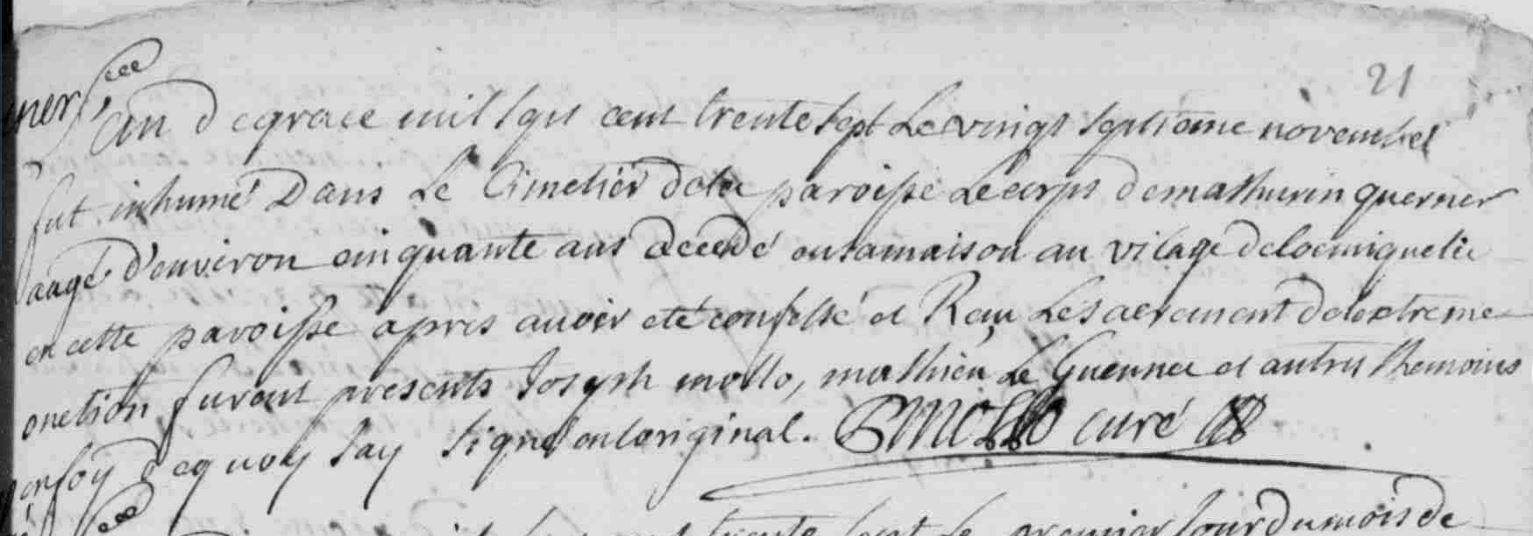 21
L'an de grace mil sept cent trente sept Le vingt septieme novembre
fut inhumé Dans Le Cimetier dela paroisse Le corps de mathurin querner
aagé d'environ cinquante ans decedé en sa maison au vilage de locmiquelic
en cette paroisse apres auoir eté confessé et Reçu Le sacrement de lextreme
onction furent presents Joseph mollo, mathieu Le Guennec et autres themoins
en foy dequoy Jay signé en loriginal. P MOLLO curé
trente sept Le premier Jour du mois de